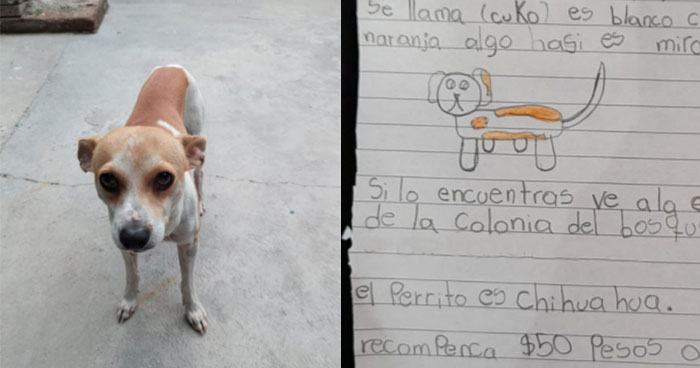 Se llama (cuko) es blanco c
naranja algo hasi es mira
Si lo encuentras ve alg e
de la Colonia del bosqu
el Perrito es chihuahua.
recomPenca $50 Pesos o